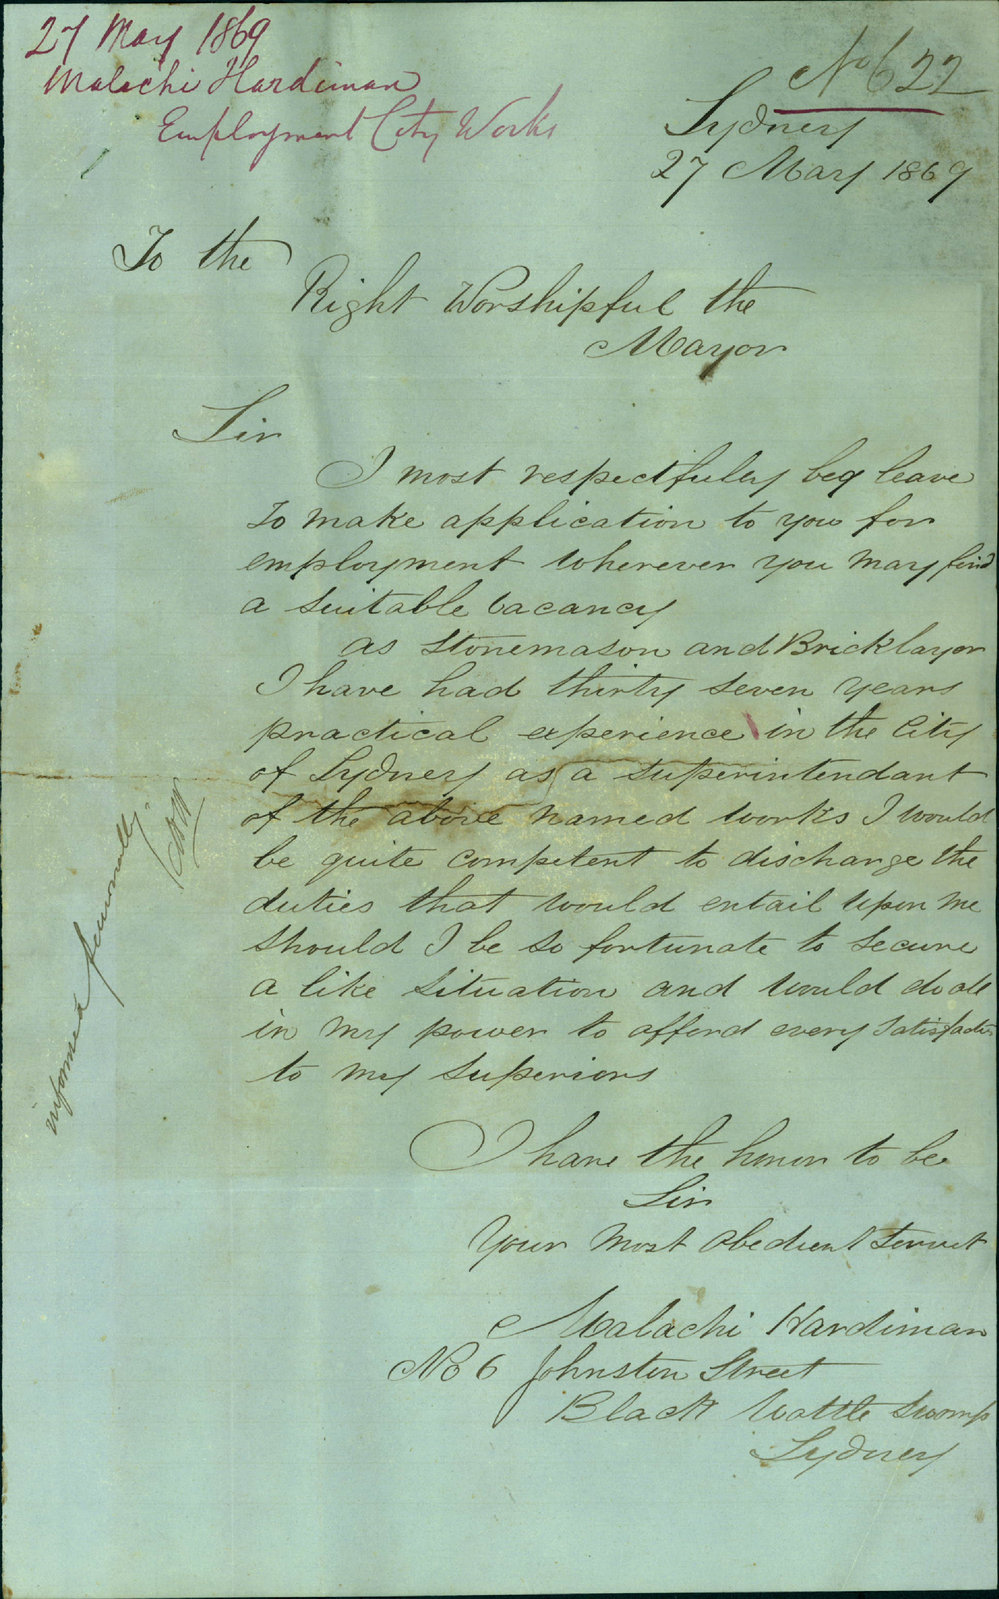 27 May 1869
Malachi Hardiman
Employment City Works
No 622
Sydney
27 May 1869
To the
Right Worshipful the
Mayor
Sir
I most respectfully beg leave
to make application to you for
employment wherever you may find
a suitable vacancy
as Stonemason and Bricklayer
I have had thirty seven years
practical experience in the City
of Sydney as a superintendant
of the above named works I would
be quite competent to discharge the
duties that would entail upon me
should I be so fortunate to secure
a like situation and would do all
in my power to afford every satisfaction
to my superiors
I have the honor to be
Sir
Your most obedient Servant
Malachi Hardiman
No 6 Johnston Street
Black Wattle Swamp
Sydney
informed